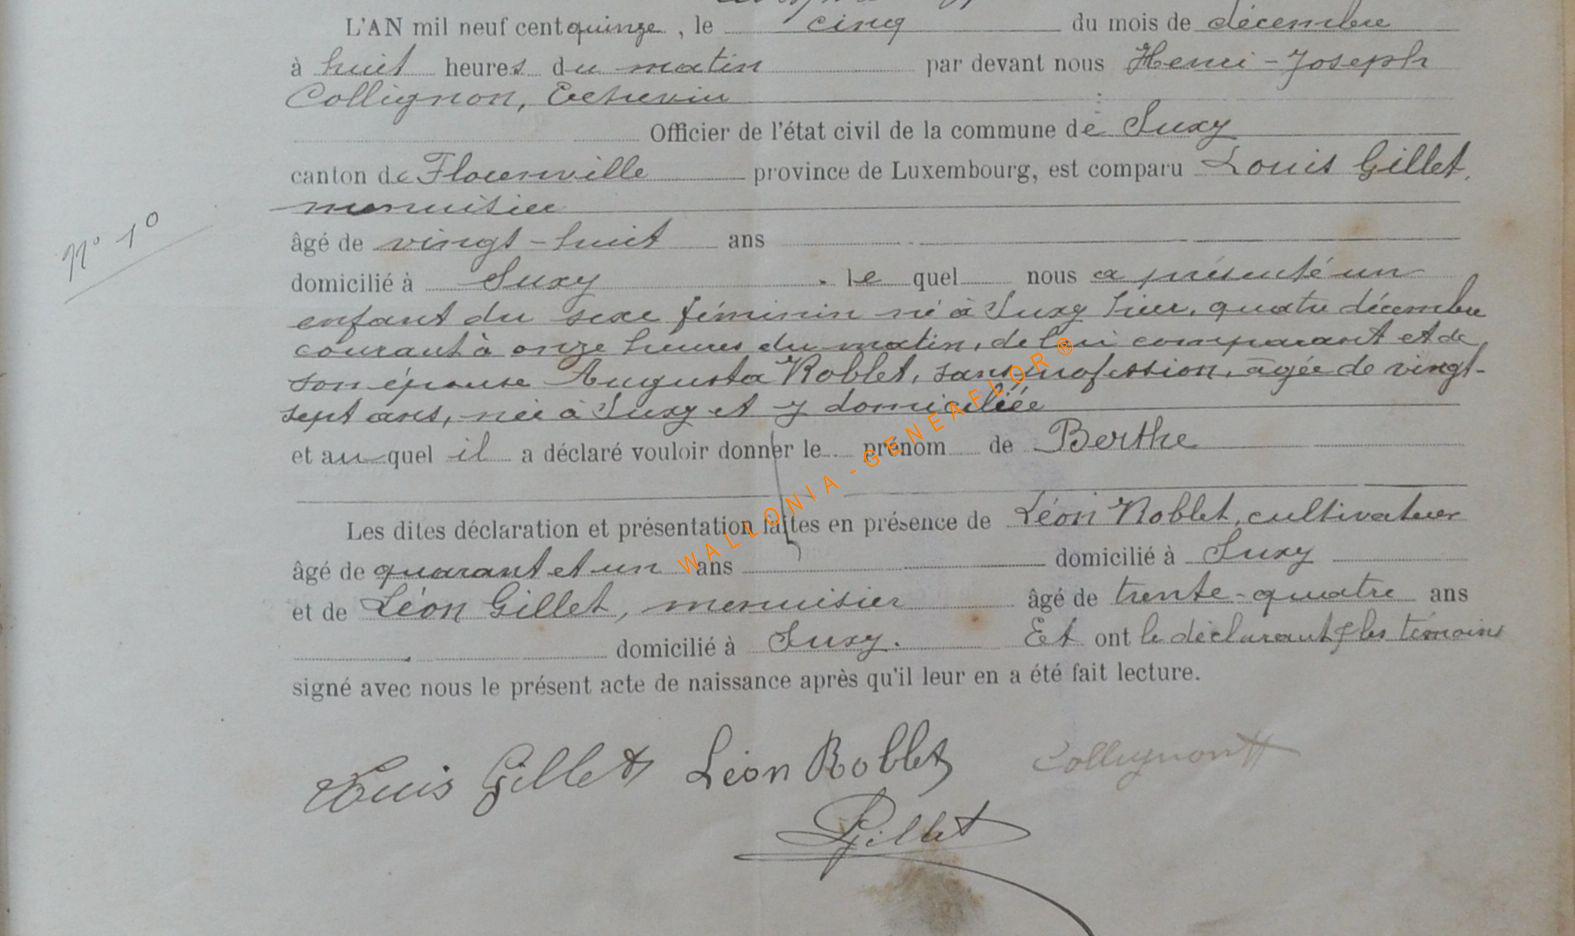 L'AN mil neuf cent quinze, le cinq du mois de décembre
à huit heures du matin par devant nous Henri-Joseph
Collignon, Echevin
Officier de l'état civil de la commune de Suxy
canton de Florenville province de Luxembourg, est comparu Louis Gillet,
menuisier
N° 10
âgé de vingt-huit ans
domicilié à Suxy. lequel nous a présenté un
enfant du sexe féminin né à Suxy hier, quatre décembre
courant à onze heures du matin, de lui comparant et de
son épouse Augusta Roblet, sans profession, âgée de vingt-
sept ans, née à Suxy et y domiciliée
et auquel il a déclaré vouloir donner le prénom de Berthe
WALLONIA-GENEAFLOR®
Les dites déclaration et présentation faites en présence de Léon Roblet, cultivateur
âgé de quarant et un ans domicilié à Suxy
et de Léon Gillet, menuisier âgé de trente-quatre ans
domicilié à Suxy. Et ont le déclarant & les témoins
signé avec nous le présent acte de naissance après qu'il leur en a été fait lecture.
Louis Gillet Léon Roblet Collignon
Gillet